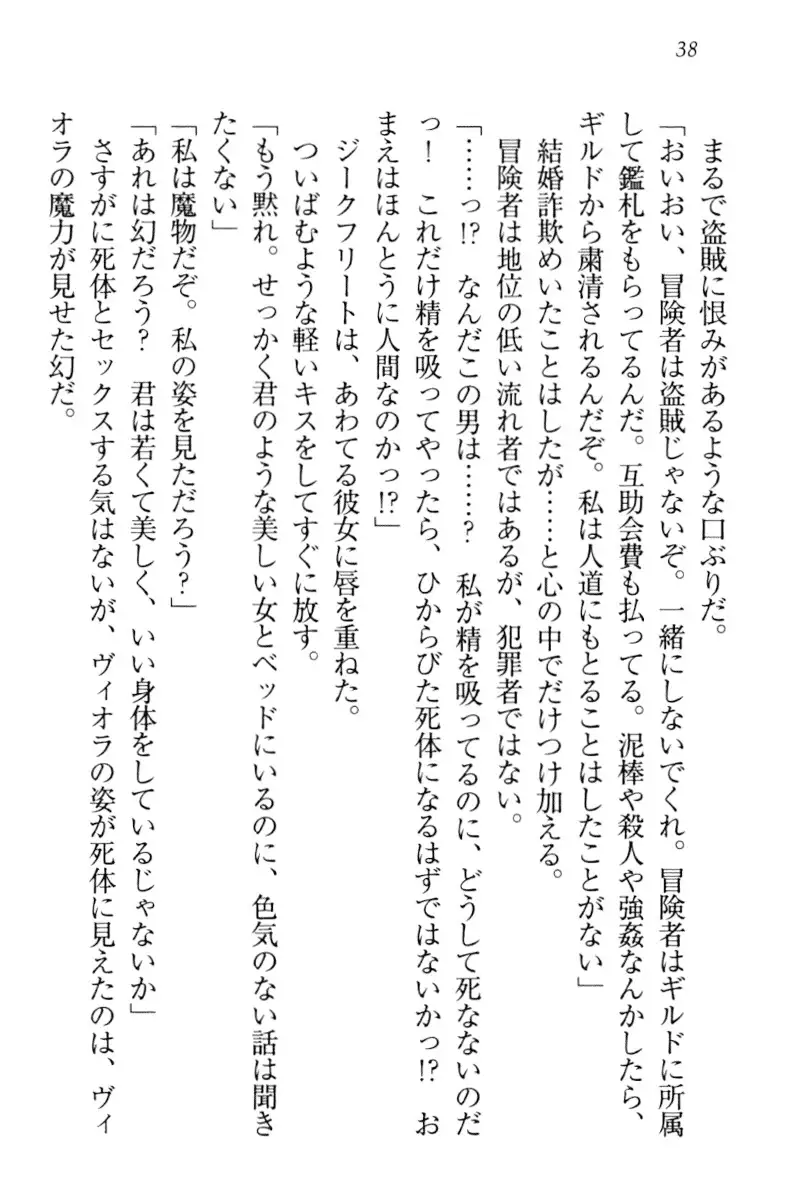 38
まるで盗賊に恨みがあるような口ぶりだ。
「おいおい、冒険者は盗賊じゃないぞ。一緒にしないでくれ。冒険者はギルドに所属
して鑑札をもらってるんだ。互助会費も払ってる。泥棒や殺人や強姦なんかしたら、
ギルドから粛清されるんだぞ。私は人道にもとることはしたことがない」
結婚詐欺めいたことはしたが……と心の中でだけつけ加える。
冒険者は地位の低い流れ者ではあるが、犯罪者ではない。
「……っ!?　なんだこの男は……?　私が精を吸ってるのに、どうして死なないのだ
っ!　これだけ精を吸ってやったら、ひからびた死体になるはずではないかっ!?　お
まえはほんとうに人間なのかっ!?」
ジークフリートは、あわてる彼女に唇を重ねた。
ついばむような軽いキスをしてすぐに放す。
「もう黙れ。せっかく君のような美しい女とベッドにいるのに、色気のない話は聞き
たくない」
「私は魔物だぞ。私の姿を見ただろう?」
「あれは幻だろう?　君は若くて美しく、いい身体をしているじゃないか」
さすがに死体とセックスする気はないが、ヴィオラの姿が死体に見えたのは、ヴィ
オラの魔力が見せた幻だ。